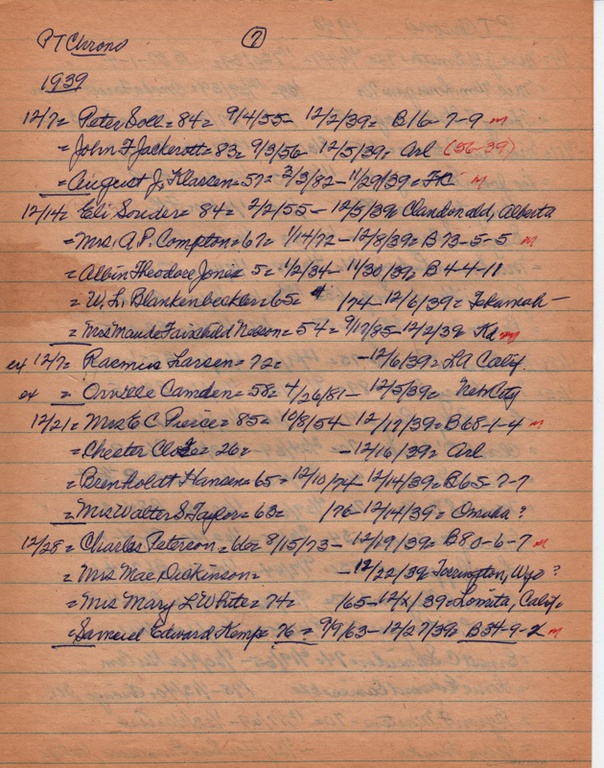 PT Chrono 7
1939
12/7 = Peter Soll = 84 = 9/4/55 - 12/2/39 = B16-7-9 m
= John F Jackerott = 83 = 9/3/56 - 12/5/39 = Arl (56-39)
= August J. Klassen = 57 = 3/3/82 - 11/29/39 = m
12/14 = Eli Souder = 84 = 2/2/55 - 12/5/39 = Clandonald, Alberta
= Mrs. A.P. Compton = 67 = 1/14/72 - 12/8/39 = B73-5-5 m
= Albin Theodore Jones 5 = 1/2/34 - 11/30/39 = B4-4-11
= W. L. Blankenbeckler = 65 = /74 - 12/6/39 = Tekamah -
= Mrs Maude Fairchild Nelson = 54 = 9/17/85 - 12/2/39 m
ex 12/7 = Rasmus Larsen = 72 = - 12/6/39 = LA Calif.
ex = Orville Camden = 58 = 4/26/81 - 12/5/39 = Neb City
12/21 = Mrs E C Pierce = 85 = 10/8/54 - 12/17/39 = B68-1-4 m
= Chester = 26 = - 12/16/39 = Arl
= Hansen = 65 = 12/10/74 - 12/14/39 = B65-7-7
= Mrs Walter S Taylor = 63 = /76 - 12/14/39 = Omaha ?
12/28 = Charles Peterson = 66 = 8/15/73 - 12/19/39 = B80-6-7 m
= Mrs Mae Dickinson = - 12/22/39 = Torrington, Wyo ?
= Mrs Mary L White = 74 = /65 - 12/x/39 = Lomita, Calif.
= Samuel Edward Kemp = 76 = 9/9/63 - 12/27/39 = B34-9-2 m